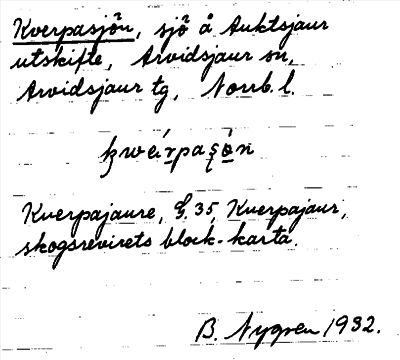 Kverpasjön, sjö å Auktsjaur
utskifte, Arvidsjaur sn,
Arvidsjaur tg, Norrb. l.
Kverpajaure, G. 35, Kverpajaur,
skogsrevirets block-karta.
B. Nygren 1932.